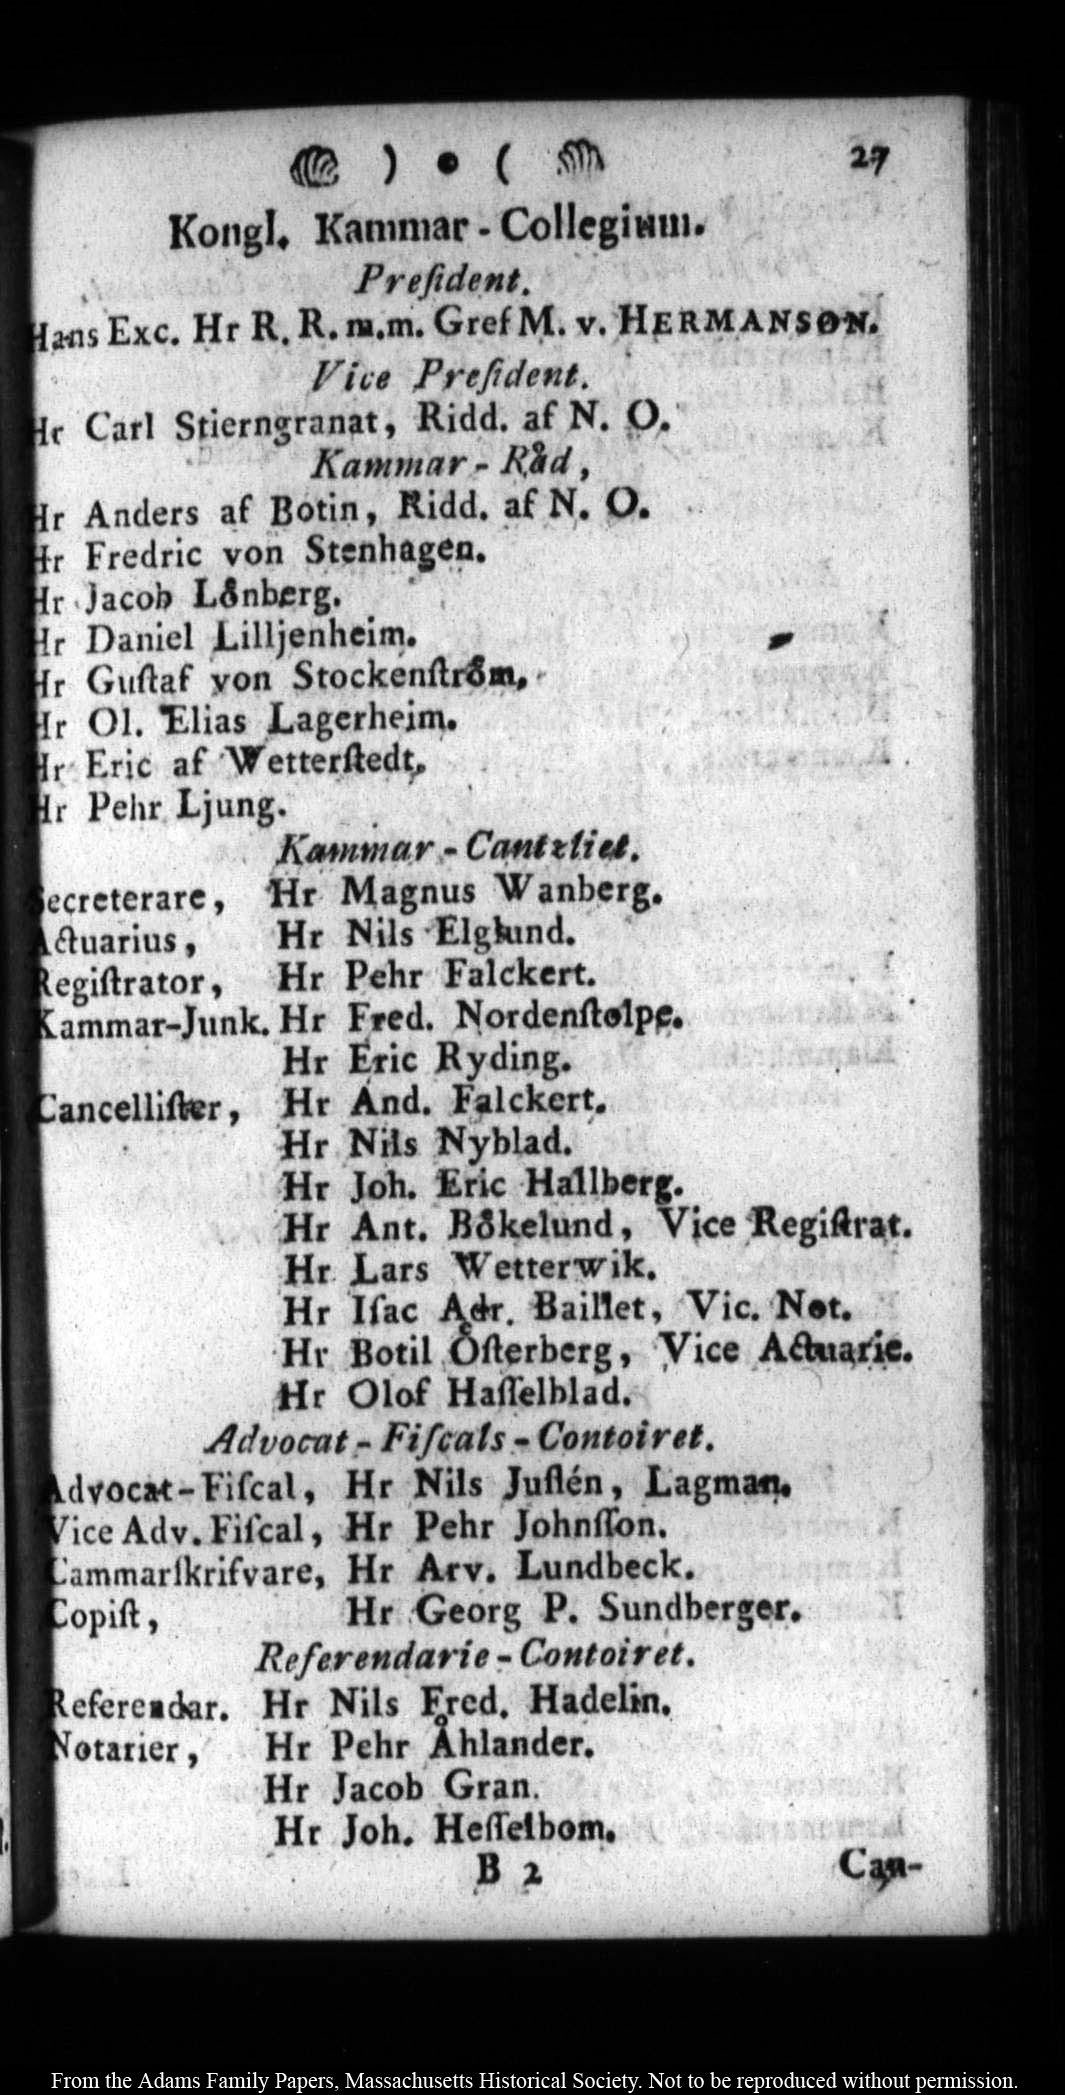 ) • ( 27
Kongl. Kammar-Collegium.
Preſident.
Hans Exc. Hr R. R. m.m. Gref M. v. HERMANSON.
Vice Preſident.
Hr Carl Stierngranat, Ridd. af N. O.
Kammar-Råd,
Hr Anders af Botin, Ridd. af N. O.
Hr Fredric von Stenhagen.
Hr Jacob Lönberg.
Hr Daniel Lilljenheim.
Hr Guſtaf von Stockenſtröm.
Hr Ol. Elias Lagerheim.
Hr Eric af Wetterſtedt.
Hr Pehr Ljung.
Kammar-Cantzliet.
Secreterare, Hr Magnus Wanberg.
Actuarius, Hr Nils Elglund.
Regiſtrator, Hr Pehr Falckert.
Kammar-Junk. Hr Fred. Nordenſtolpe.
Hr Eric Ryding.
Cancelliſter, Hr And. Falckert.
Hr Nils Nyblad.
Hr Joh. Eric Hallberg.
Hr Ant. Bökelund, Vice Regiſtrat.
Hr Lars Wetterwik.
Hr Iſac Adr. Baillet, Vic. Not.
Hr Botil Öſterberg, Vice Actuarie.
Hr Olof Haſſelblad.
Advocat-Fiſcals-Contoiret.
Advocat-Fiſcal, Hr Nils Juſlén, Lagman.
Vice Adv. Fiſcal, Hr Pehr Johnſſon.
Cammarſkrifvare, Hr Arv. Lundbeck.
Copiſt, Hr Georg P. Sundberger.
Referendarie-Contoiret.
Referendar. Hr Nils Fred. Hadelin.
Notarier, Hr Pehr Åhlander.
Hr Jacob Gran.
Hr Joh. Heſſelbom.
B 2 Can-
From the Adams Family Papers, Massachusetts Historical Society. Not to be reproduced without permission.